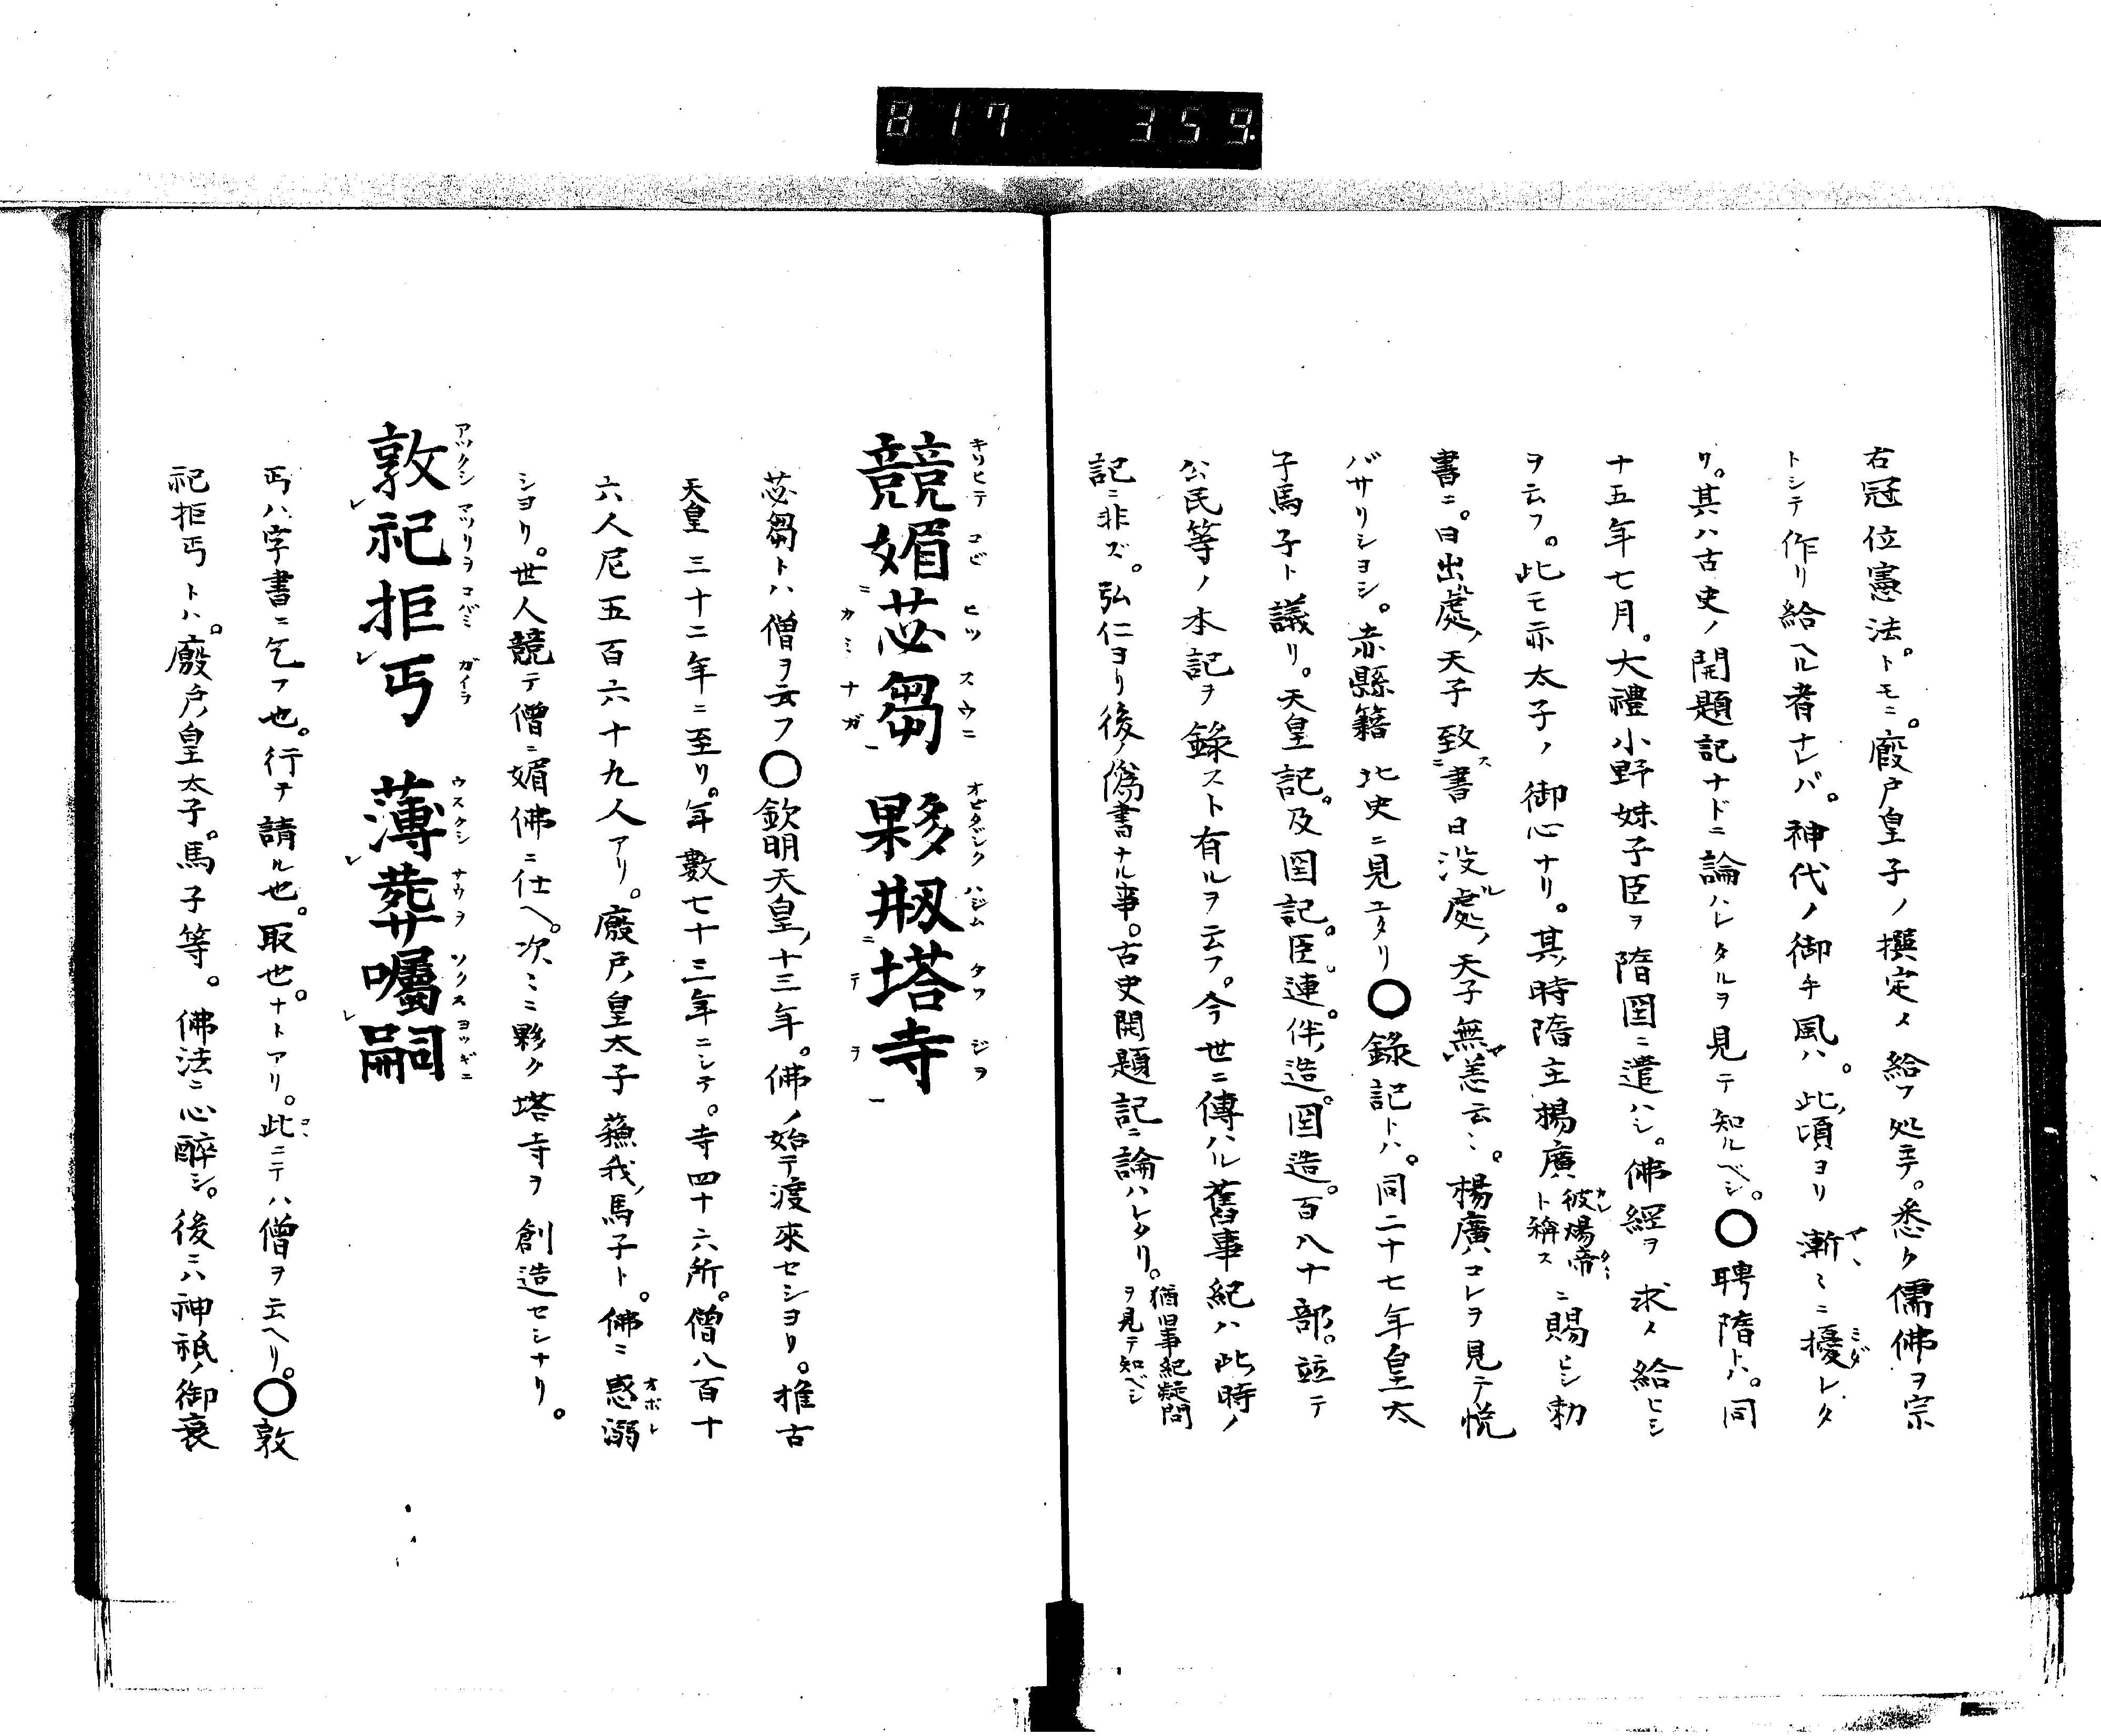 817 359
右冠位憲法。トモニ。廏戸皇子ノ撰定メ給フ処ニテ。悉ク儒佛ヲ宗
トシテ作リ給ヘル者ナレバ。神代ノ御手風ハ。此頃ヨリ漸〻ニ擾レタ
リ。其ハ古史ノ開題記ナドニ論ハレタルヲ見テ知ルベシ。〇聘隋トハ。同
十五年七月。大禮小野妹子臣ヲ隋国ニ遣ハシ。佛經ヲ求メ給ヒシ
ヲ云フ。此モ亦太子ノ御心ナリ。其時隋主楊廣彼煬帝ト稱スニ賜ヒシ勅
書ニ。日出ル處ノ天子致ス書日没ル處ノ天子無恙云〻。楊廣ハコレヲ見テ悦
バサリシヨシ。赤縣籍北史ニ見エタリ〇錄記トハ。同二十七年皇太
子馬子ト議リ。天皇記。及国記。臣。連。伴造。国造。百八十部。竝テ
公民等ノ本記ヲ錄スト有ルヲ云フ。今世ニ傳ハル舊事紀ハ此時ノ
記ニ非ズ。弘仁ヨリ後ノ僞書ナル事。古史開題記ニ論ハレタリ。猶旧事紀疑問ヲ見テ知ベシ
競媚苾蒭 夥剏塔寺
苾蒭トハ僧ヲ云フ〇欽明天皇ノ十三年。佛ノ始テ渡來セシヨリ。推古
天皇三十二年ニ至リ。年數七十三年ニシテ。寺四十六所。僧八百十
六人尼五百六十九人アリ。廏戸皇太子蘓我ノ馬子ト。佛ニ惑溺
シヨリ。世人競テ僧ニ媚佛ニ仕ヘ。次〻ニ夥ク塔寺ヲ創造セシナリ。
敦祀拒丐 薄葬囑嗣
丐ハ字書ニ乞フ也。行テ請ル也。取也。ナトアリ。此ニテハ僧ヲ云ヘリ。〇敦
祀拒丐トハ。廏戸皇太子。馬子等。佛法ニ心醉シ。後ニハ神祇ノ御衰